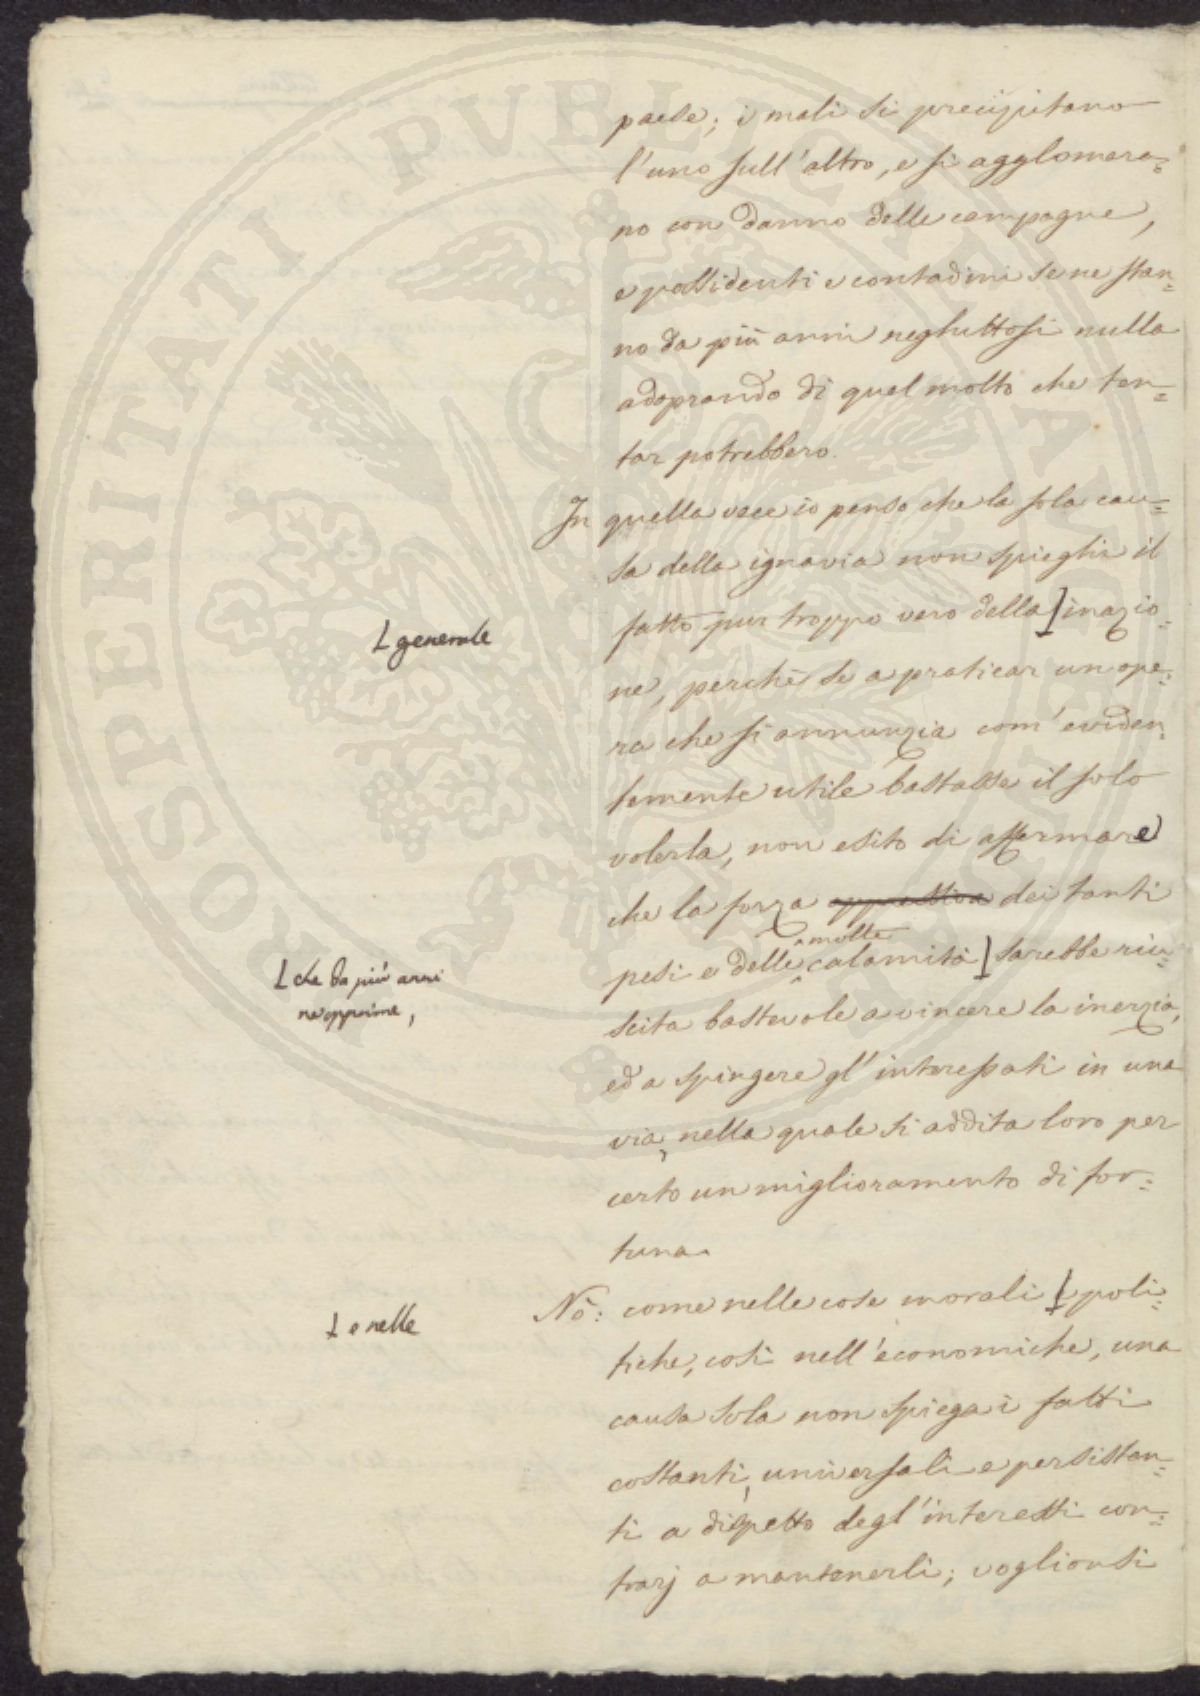 paese; i mali si precipitano
l'uno sull'altro, e si agglomera=
no con danno delle campagne,
e possidenti e contadini se ne stan=
no da più anni neghittosi nulla
adoprando di quel molto che ten=
tar potrebbero.
In quella vece io penso che la sola cau=
sa della ignavia non spieghi il
fatto pur troppo vero della ] inazio=
L generale
ne, perchè se a praticar un ope=
ra che si annunzia com'eviden=
temente utile bastasse il solo
volerla, non esito di affermare
che la forza oppressiva dei tanti
molte
pesi e delle calamità ] sarebbe riu=
L che da più anni
ne opprime,
scita bastevole a vincere la inerzia,
ed a spingere gl'interessati in una
via, nella quale si addita loro per
certo un miglioramento di for=
tuna.
Nò: come nelle cose morali [ poli=
L e nelle
tiche, così nell'economiche, una
causa sola non spiega i fatti
costanti, universali e persisten=
ti a dispetto degl'interessi con=
trarj a mantenerli; voglionsi
PROSPERITATI PVBLICAE AVGENDAE